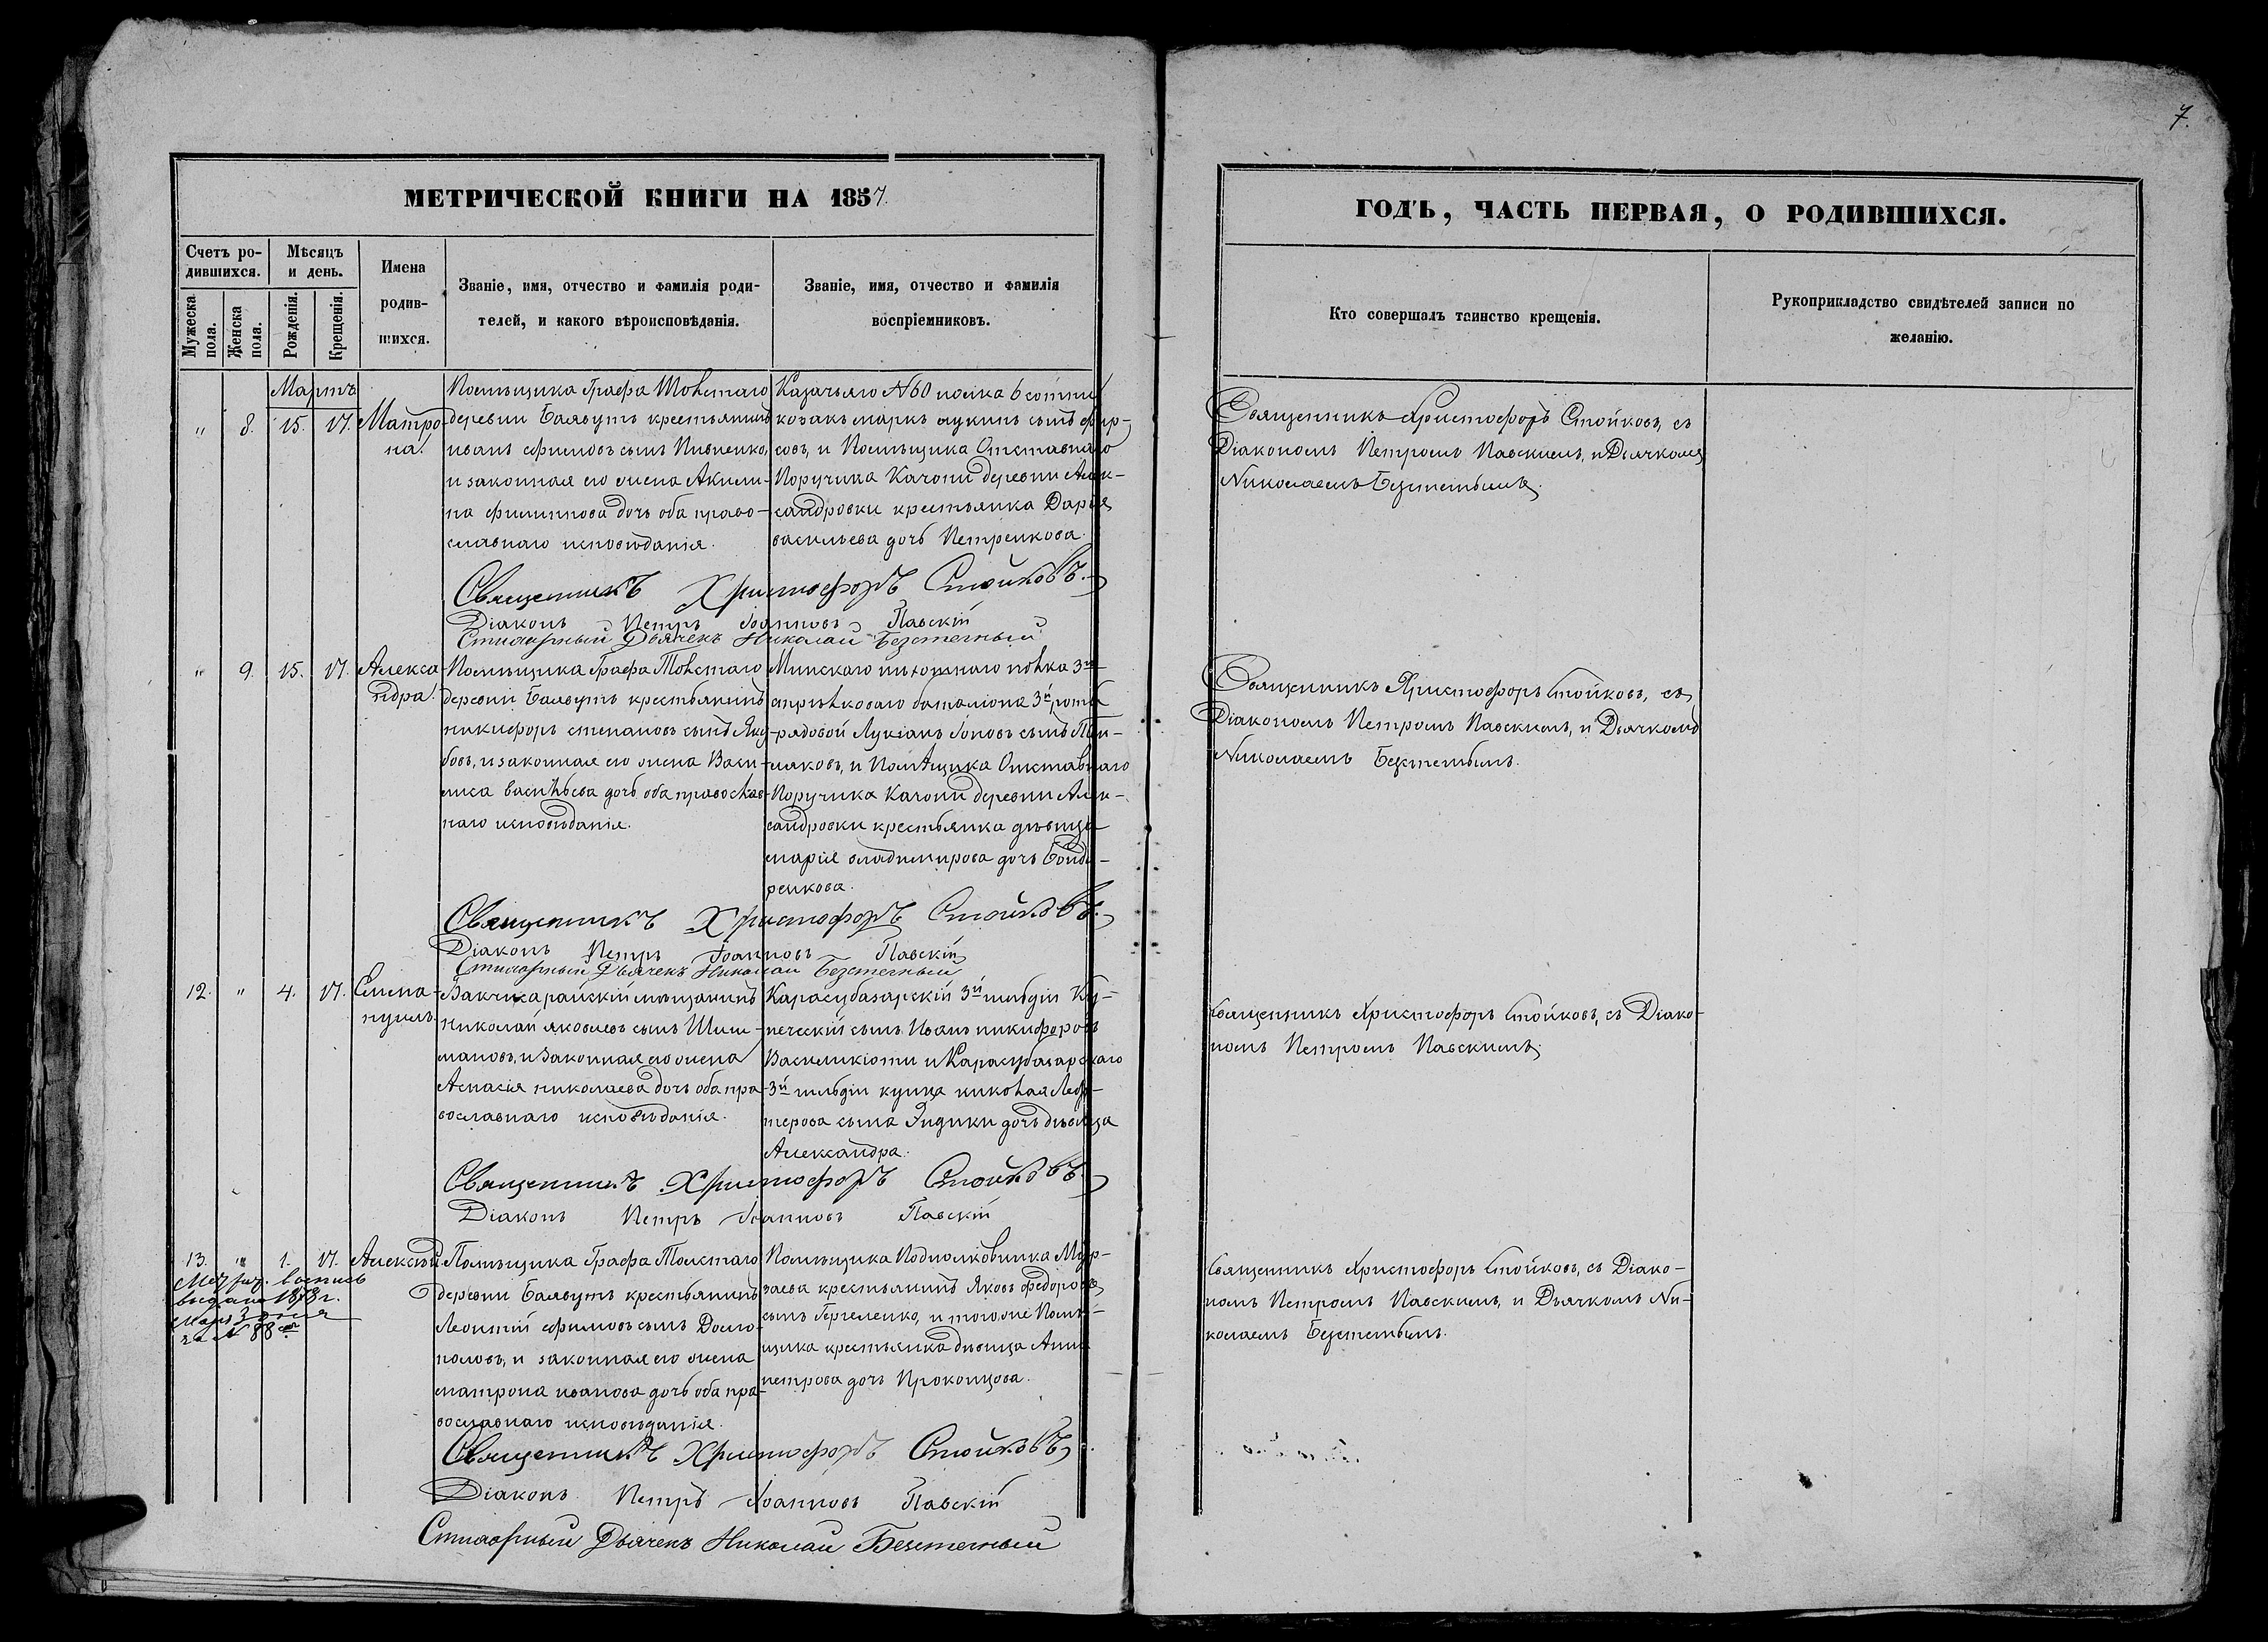 7.
МЕТРИЧЕСКОЙ КНИГИ НА 1857.
ГОДЪ, ЧАСТЬ ПЕРВАЯ, О РОДИВШИХСЯ.
Счетъ ро-
дившихся.
Мѣсяцъ
и день.
Мужеска
пола.
Женска
пола.
Рожденія.
Крещенія.
Имена
родив-
шихся.
Званіе, имя, отчество и фамилія роди-
телей, и какого вѣроисповѣданія.
Званіе, имя, отчество и фамилія
воспріемниковъ.
Кто совершалъ таинство крещенія.
Рукоприкладство свидѣтелей записи по
желанію.
Мартъ
" 8. 15. 17. Матро-
на.
Помѣщика Графа Толстаго
деревни Баявутъ крестьянинъ
иванъ ефимовъ сынъ
и законная его жена Акили-
на филиппова дочь оба право-
славнаго исповѣданія.
Казачьяго №60 полка 6 сотни
козакъ маркъ лукинъ сынъ фир-
совъ, и Помѣщика Отставнаго
Поручика Качони деревни Алек-
сандровки крестьянка Дарія
васильева дочь Петренкова.
Священникъ Христофоръ Стойковъ, съ
Діакономъ Петромъ Павскимъ, и Дьячкомъ
Николаемъ
Священникъ Христофоръ Стойковъ.
Діаконъ Петръ Іоанновъ Павскій
Стихарный Дьячекъ Николай
" 9. 15. 17. Алекса-
ндра.
Помѣщика Графа Толстаго
деревни Баявутъ крестьянинъ
никифоръ степановъ сынъ Яку-
бовъ, и законная его жена Васи-
лиса васильева дочь оба православ-
наго исповѣданія.
Минскаго пѣхотнаго полка 3го
стрѣлковаго баталіона 3й роты
рядовой Лукіанъ сынъ
и Помѣщика Отставнаго
Поручика Качони деревни Алек-
сандровки крестьянка дѣвица
марія владимирова дочь Бонда-
ренкова.
Священникъ Христофоръ Стойковъ, съ
Діакономъ Петромъ Павскимъ, и Дьячкомъ
Николаемъ
Священникъ Христофоръ Стойковъ.
Діаконъ Петръ Іоанновъ Павскій
Стихарный Дьячекъ Николай
12. " 4. 17.
Бакчисарайскій мѣщанинъ
Николай яковлевъ сынъ Шиш-
мановъ, и законная его жена
Аспасія николаева дочь оба пра-
вославнаго исповѣданія.
Карасубазарскій 3й гильдіи Ку-
печескій сынъ Иванъ никифоровъ
и Карасубазарскаго
3й гильдіи купца николая
сына дочь дѣвица
Александра.
Священникъ Христофоръ Стойковъ, съ Діако-
номъ Петромъ Павскимъ.
Священникъ Христофоръ Стойковъ.
Діаконъ Петръ Іоанновъ Павскій
13. " 1. 17. Алексѣй.
выдана 1878 г.
за № 88
Помѣщика Графа Толстаго
деревни Баявутъ крестьянинъ
Леонтій ефимовъ сынъ Долго-
половъ, и законная его жена
матрона иванова дочь оба пра-
вославнаго исповѣданія.
Помѣщика Подполковника Мур-
заева крестьянинъ Яковъ федоровъ
сынъ и тогоже Помѣ-
щика крестьянка дѣвица Анна
петрова дочь Прокопцова.
Священникъ Христофоръ Стойковъ, съ Діако-
номъ Петромъ Павскимъ, и Дьячкомъ Ни-
колаемъ
Священникъ Христофоръ Стойковъ.
Діаконъ Петръ Іоанновъ Павскій
Стихарный Дьячекъ Николай